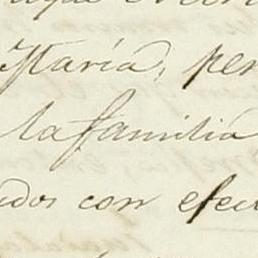 María, per
la familia
dos con efect